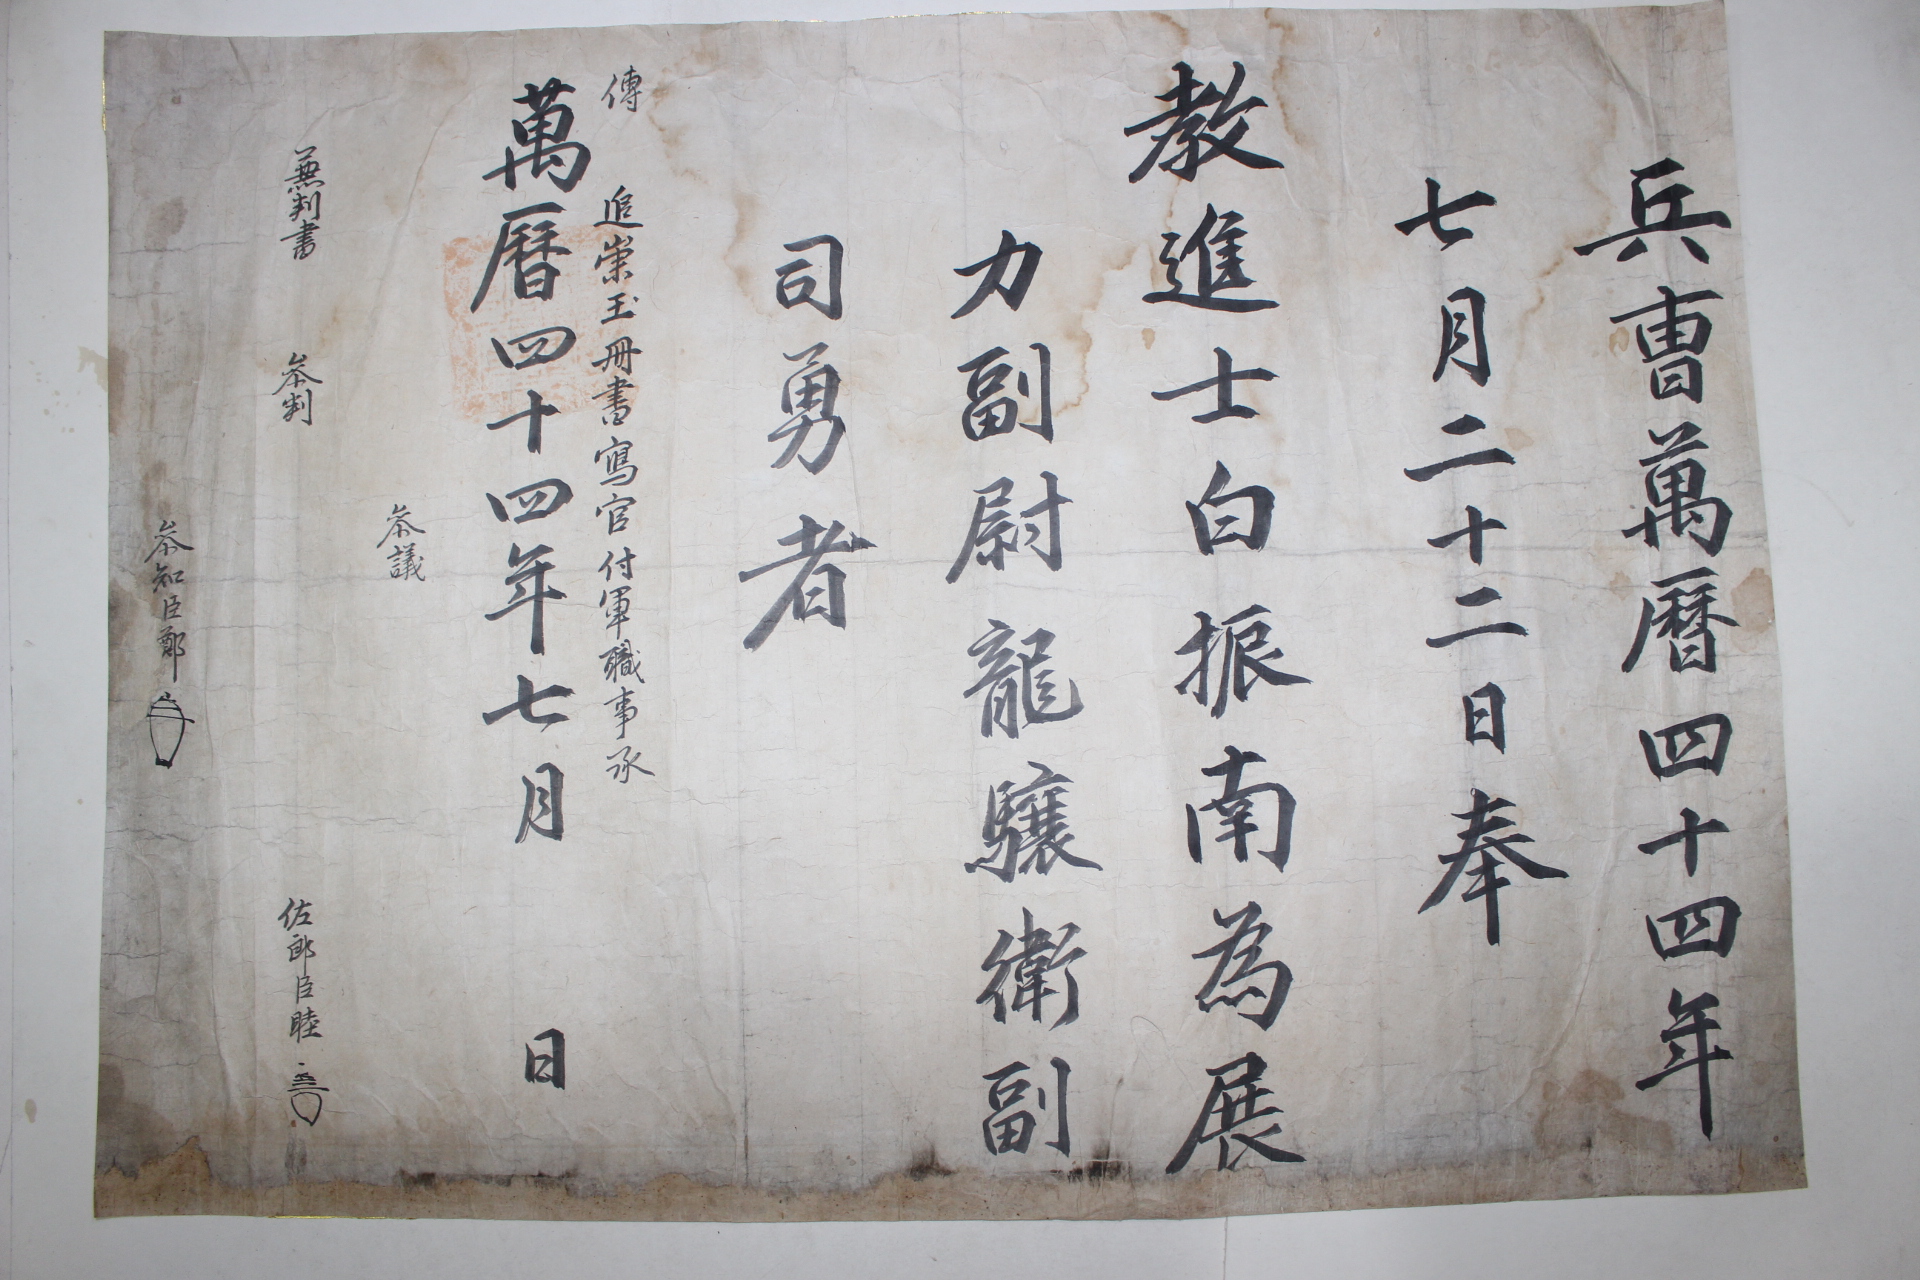 兵曺萬曆四十四年
七月二十二日奉
教進士白振南為展
力副尉龍驤衛副
司勇者
傳
追崇玉冊書寫官付軍職事承
萬曆四十四年七月 日
叅議
兼判書 叅判 佐郎臣睦
叅知臣鄭